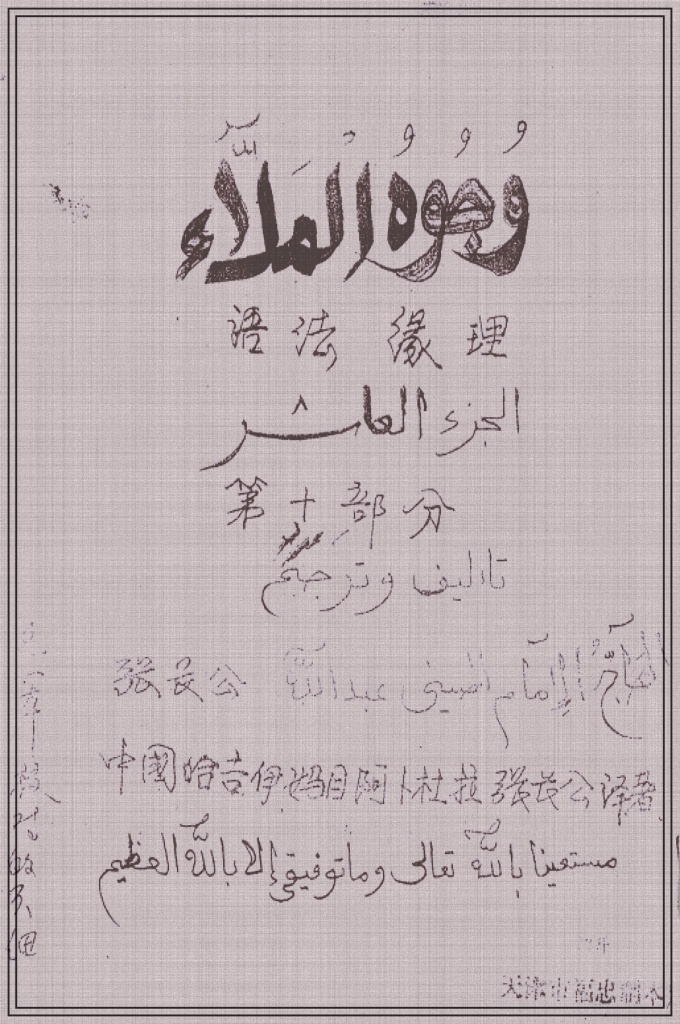 وُجُوهُ الْمَلَآءِ
语法 缘理
الجزء العاشر
第十部分
تأليف وترجمة
الحَاجّ الإمام الصيني عبدالله 张长公
中國哈吉伊妈目阿卜杜拉张长公译著
مستعينا بالله تعالى وما توفيقي إلا بالله العظيم
天津市福忠制本